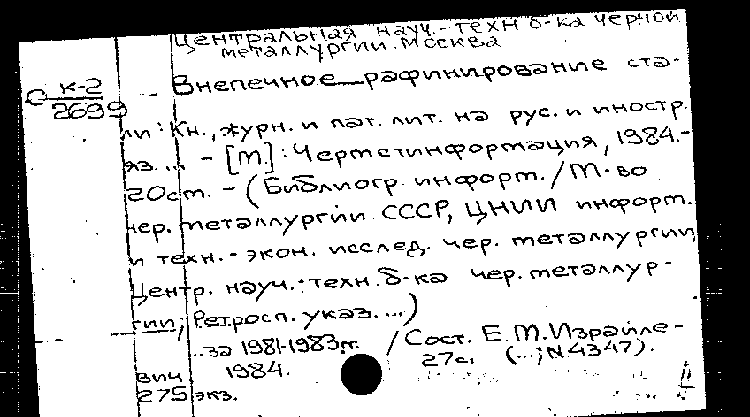 Центральная науч.-техн б-ка черной
металлургии. Москва
С К-2
2699
Внепечное рафинирование ста-
ли : Кн., журн. и пат. лит. на рус. и иностр.
яз... - [М.] : Черметинформация, 1984.-
20см. - (Библиогр. информ. / М-во
чер. металлургии СССР, ЦНИИ информ.
и техн.-экон. исслед. чер. металлургии,
Центр. науч.-техн. б-ка чер. металлур-
гии; Ретросп. указ. ...)
...за 1981-1983гг. / Сост. Е.М.Израйле-
вич 1984. 27с. (...; N4347).
275 экз.